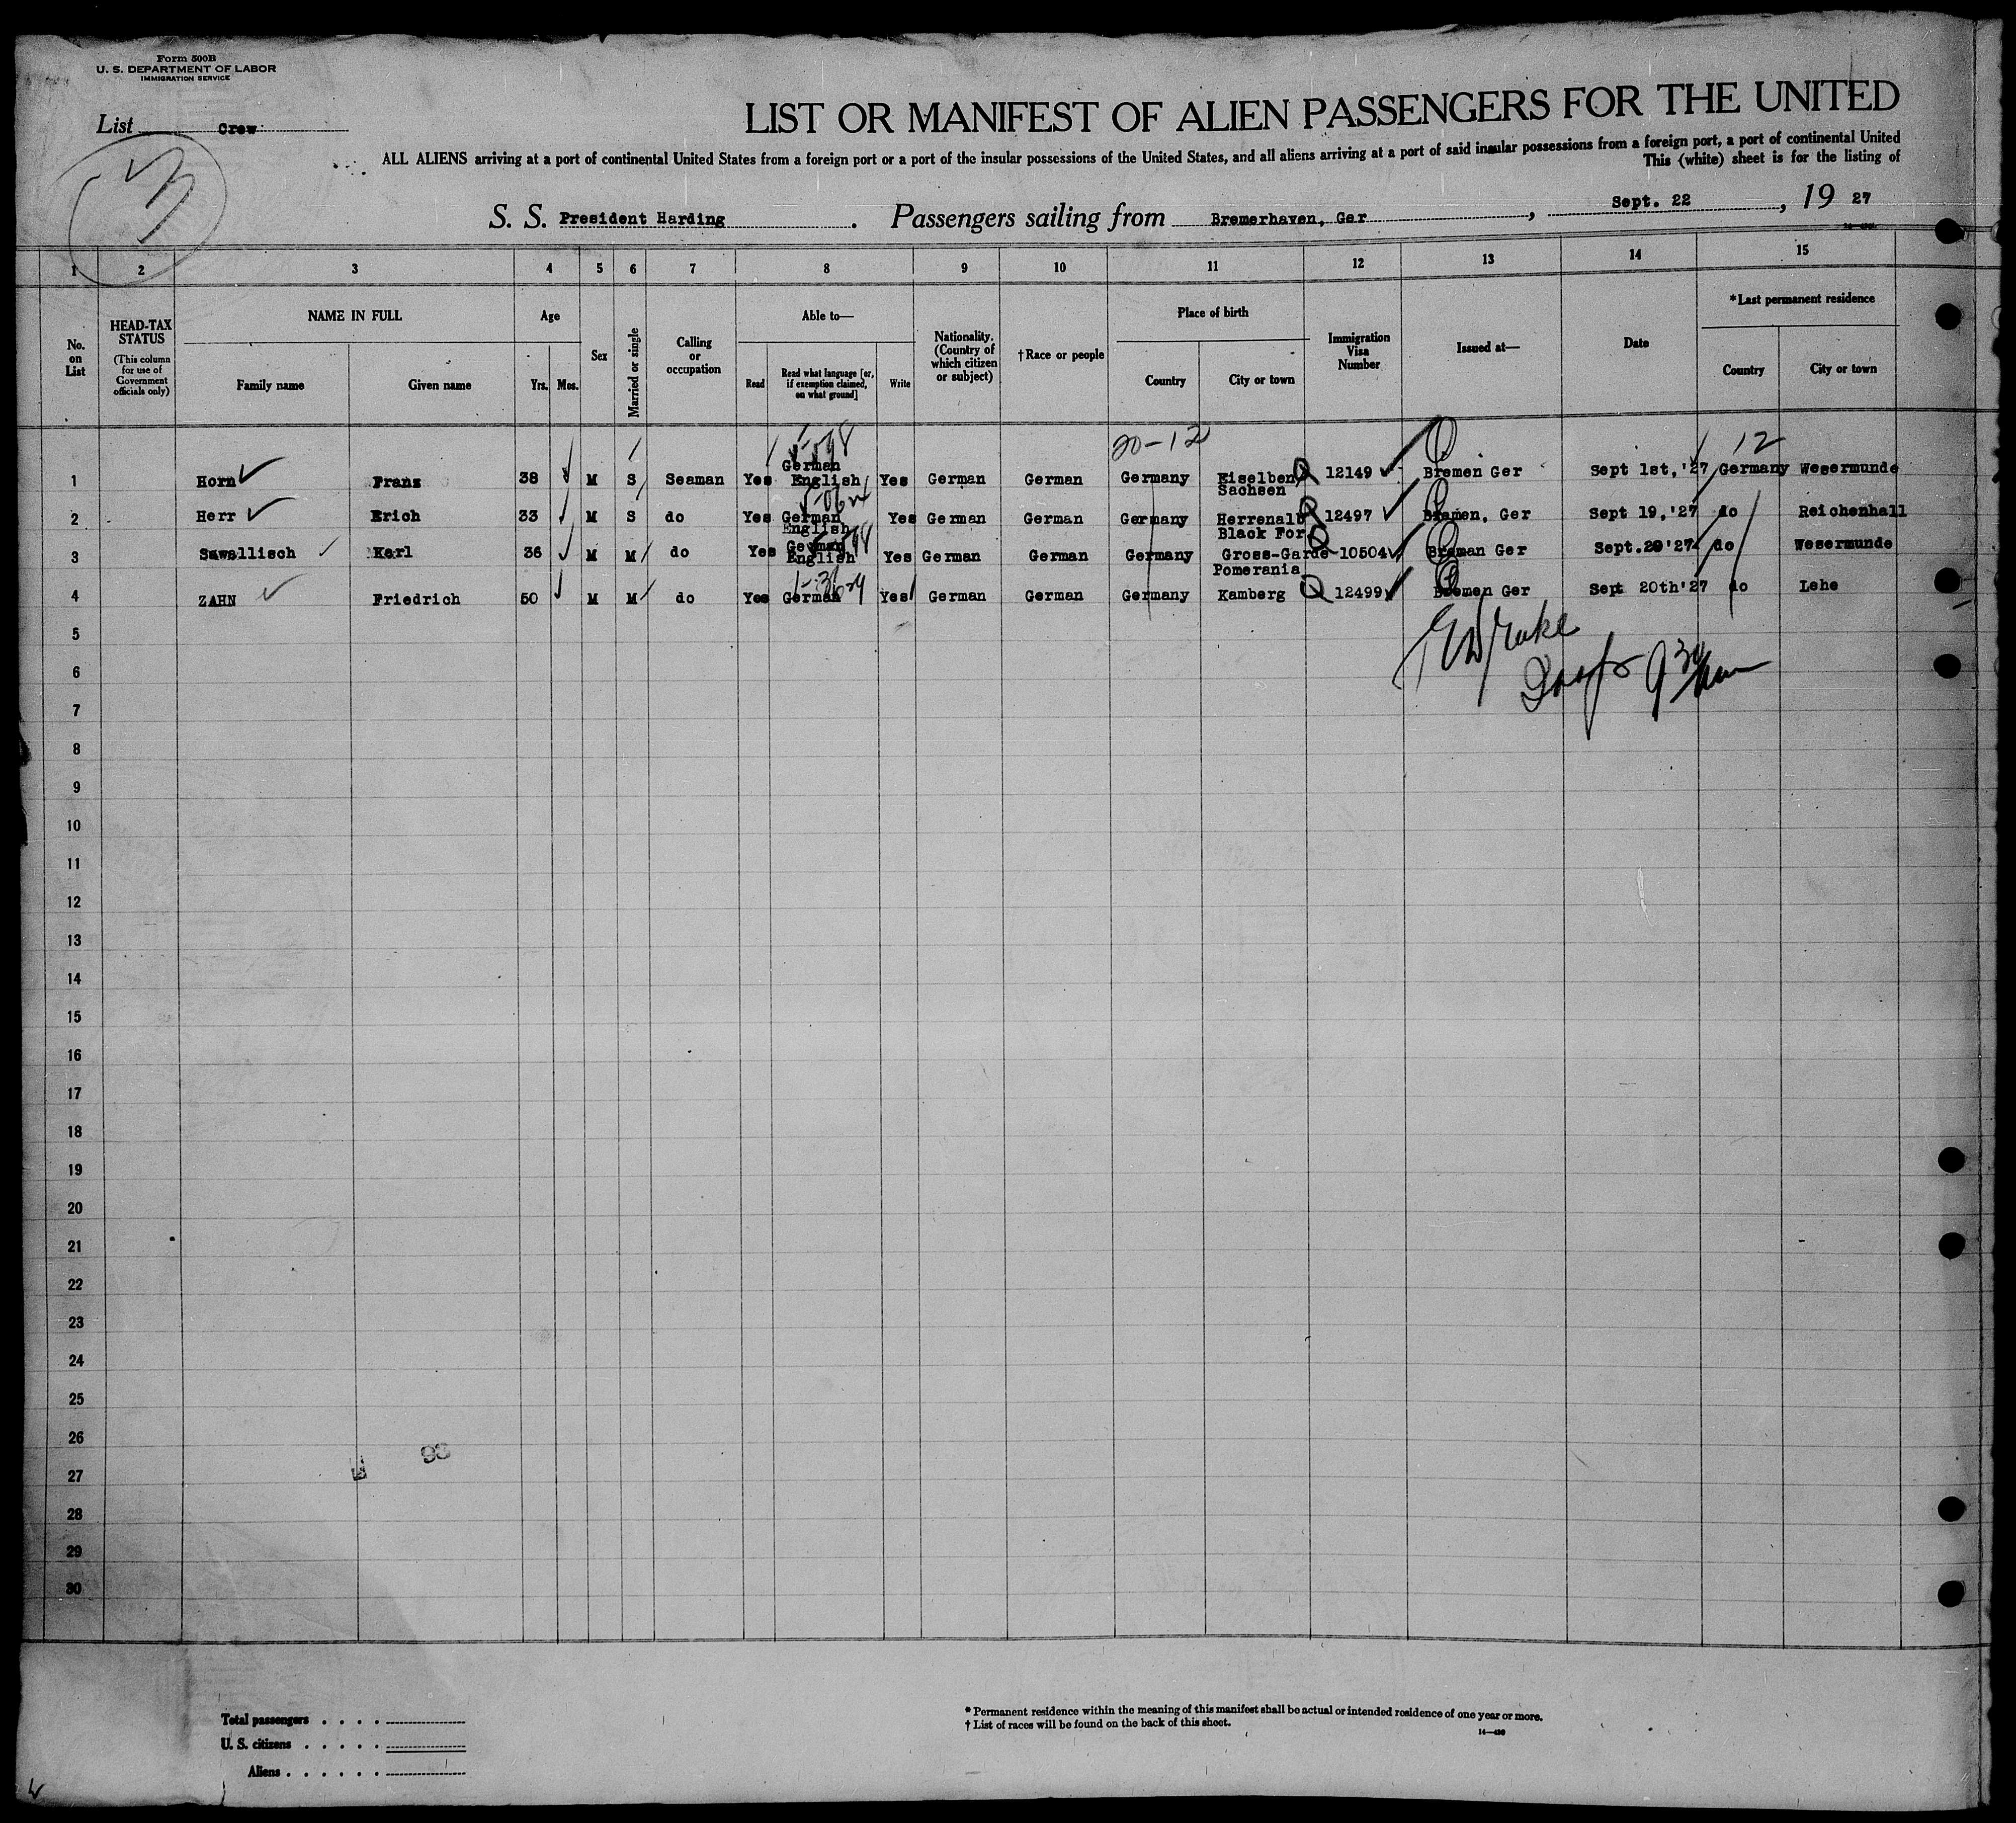 Form 500B
U. S. DEPARTMENT OF LABOR
IMMIGRATION SERVICE
List Crew
LIST OR MANIFEST OF ALIEN PASSENGERS FOR THE UNITED
ALL ALIENS arriving at a port of continental United States from a foreign port or a port of the insular possessions of the United States, and all aliens arriving at a port of said insular possessions from a foreign port, a port of continental United
This (white) sheet is for the listing of
S. S. President Harding . Passengers sailing from Bremerhaven, Ger , Sept. 22 , 19 27
1 2 3 4 5 6 7 8 9 10 11 12 13 14 15
No. on List
HEAD-TAX STATUS
(This column for use of Government officials only)
NAME IN FULL
Family name Given name
Age
Yrs. Mos.
Sex
Married or single
Calling or occupation
Able to—
Read Read what language [or, if exemption claimed, on what ground] Write
Nationality. (Country of which citizen or subject)
†Race or people
Place of birth
Country City or town
Immigration Visa Number
Issued at—
Date
*Last permanent residence
Country City or town
20-12 12
1 Horn Franz 38 M S Seaman Yes German English Yes German German Germany Eiselben Sachsen 12149 Bremen Ger Sept 1st,'27 Germany Wesermunde
2 Herr Erich 33 M S do Yes German English Yes German German Germany Herrenalb Black For 12497 Bremen, Ger Sept 19,'27 do Reichenhall
3 Sawallisch Karl 36 M M do Yes German English Yes German German Germany Gross-Garde Pomerania 10504 Breman Ger Sept.20'27 do Wesermunde
4 ZAHN Friedrich 50 M M do Yes German Yes German German Germany Kamberg 12499 Bremen Ger Sept 20th'27 do Lehe
5
6
7
8
9
10
11
12
13
14
15
16
17
18
19
20
21
22
23
24
25
26
93
27
28
29
30
Total passengers . . . .
U. S. citizens . . . . .
Aliens . . . . . .
* Permanent residence within the meaning of this manifest shall be actual or intended residence of one year or more.
† List of races will be found on the back of this sheet.
14—430